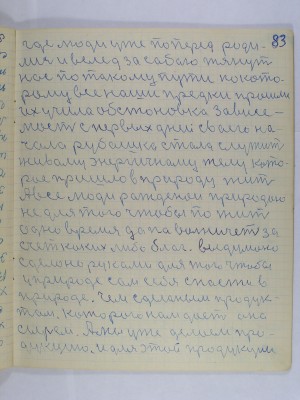 83
где люди уже поперед роди-
лись и вслед за собою тянут
нас по такому пути по кото-
рому все наши предки прошли
их учила обстоновка зависе-
мость с первых дней своего на-
чала рубашка стала служит
живому энергичному телу кото-
рое пришло в природу жит
А все люди рожденои природою
не для того чтобы пожит
одно время да та за
счет каких либо благ.
сделано руками для того чтобы
у природе сам себя спасти в
природе. Чем сделаным продук-
том, которого нам дает она
сырем. А мы уже делаем про-
дукцию. и для этой продукции